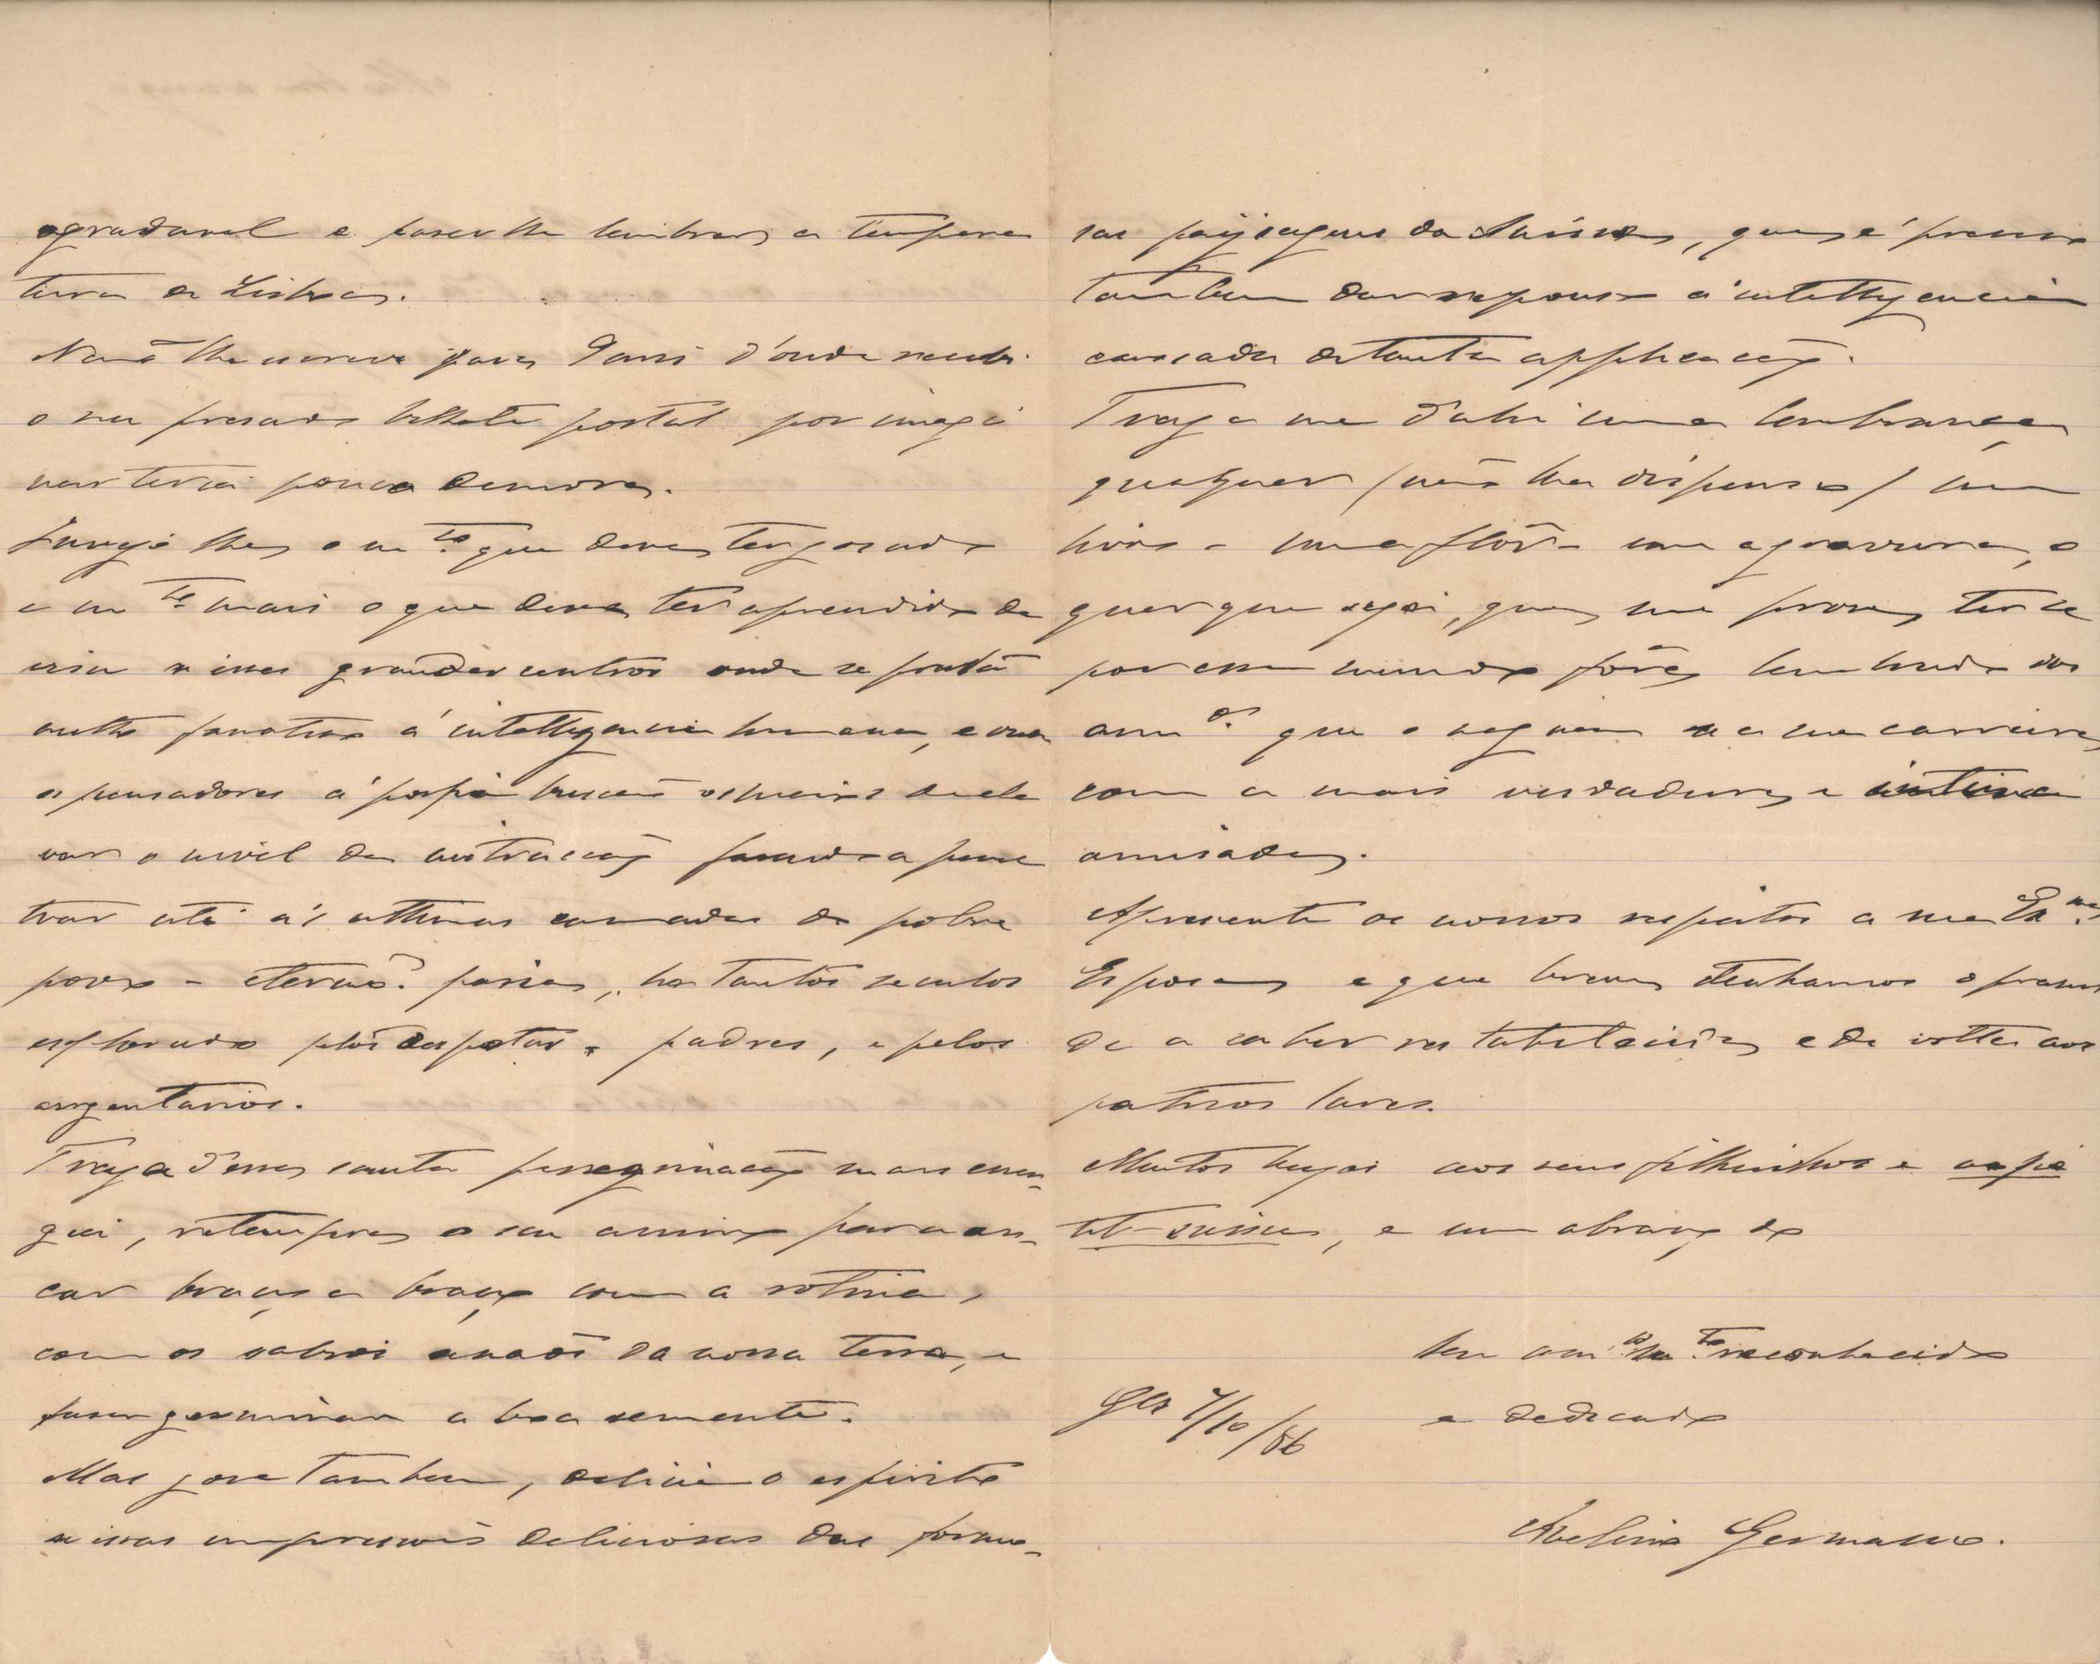 agradavel e fazer lhe lembrar a tempera
tura de Lisboa.
Não lhe escrevi para Paris d'onde recebi
o seu presado bilhete postal por imagi
nar teria pouca demora.
Invejo lhe o m.to que deve ter gosado
e m.to mais o que deve ter aprendido de
n'esses grandes centros onde se presta
culto fanatico á intelligencia humana, e onde
os pensadores á porfia buscão os meios de ele
var o nivel da instrucção fazendo-a pene
trar até ás ultimas camadas do pobre
povo - eterno? paria, ha tantos seculos
explorado pelos despotas, padres, e pelos
argentarios.
Traga d'essa santa peregrinação mais
retempere o seu animo para ar_
car braço a braço com a rotina,
com os sabios anãos da nossa terra, e
fazer germinar a boa semente.
Mas gose tambem, delicie o espirito
n'essas impressões deliciosas das formo_
sas paysagens da Suissa, que é preciso
tambem dar repouso á intelligencia
cansada de tanta applicação.
Traga me d'ahi uma lembrança
qualquer (não lha dispenso) um
livro - uma flôr - uma gravura, o
quer que seja, que me prove ter se
por esse mundo fóra lembrado dos
am.os que o seguem na sua carreira
com a mais verdadeira e intima
amisade.
Apresente os nossos respeitos a sua Ex.ma
Esposa e que breve tenhamos o praser
de a saber restabelecida e de volta aos
patrios lares.
Muitos beijos aos seus filhinhos e
e um abraço do
Seu am.o m.to reconhecido
e dedicado
7/10/86
Avelino Germano.